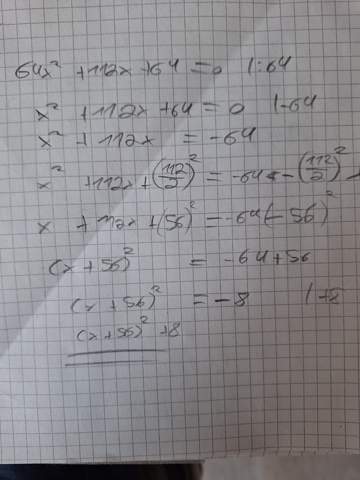 64x² + 112x + 64 = 0 | :64
x² + 112x + 64 = 0 | -64
x² + 112x = -64
x² + 112x + (112/2)² = -64 - (112/2)²
x + 112x + (56)² = -64 (-56)²
(x + 56)² = -64 + 56
(x + 56)² = -8 | +8
(x + 56)² + 8